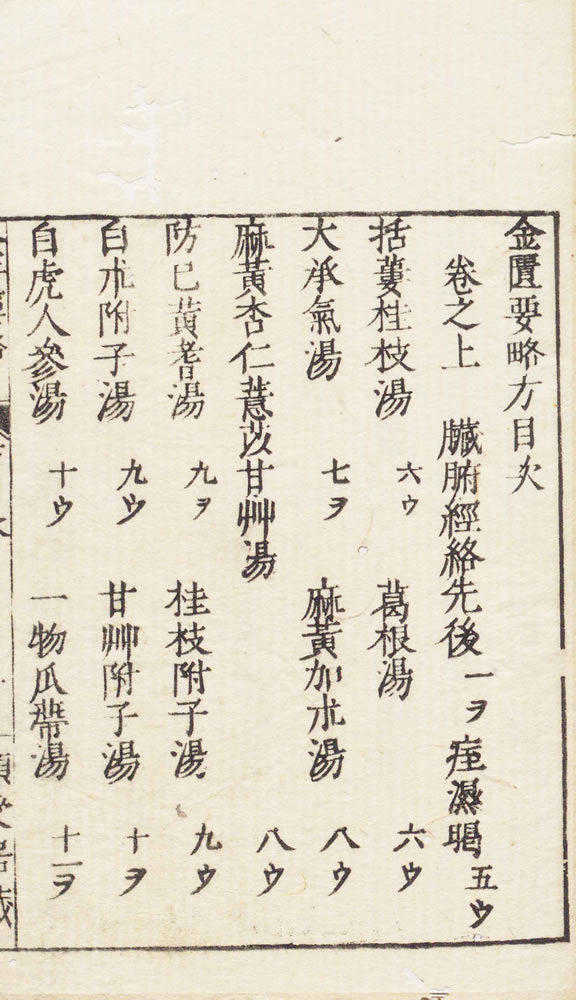 金匱要略方目次
卷之上 臟腑經絡先後 一ヲ 痓濕暍 五ウ
括蔞桂枝湯 六ウ 葛根湯 六ウ
大承氣湯 七ヲ 麻黃加朮湯 八ウ
麻黃杏仁薏苡甘艸湯 八ウ
防已黃耆湯 九ヲ 桂枝附子湯 九ウ
白朮附子湯 九ウ 甘艸附子湯 十ヲ
白虎人參湯 十ウ 一物瓜蒂湯 十一ヲ